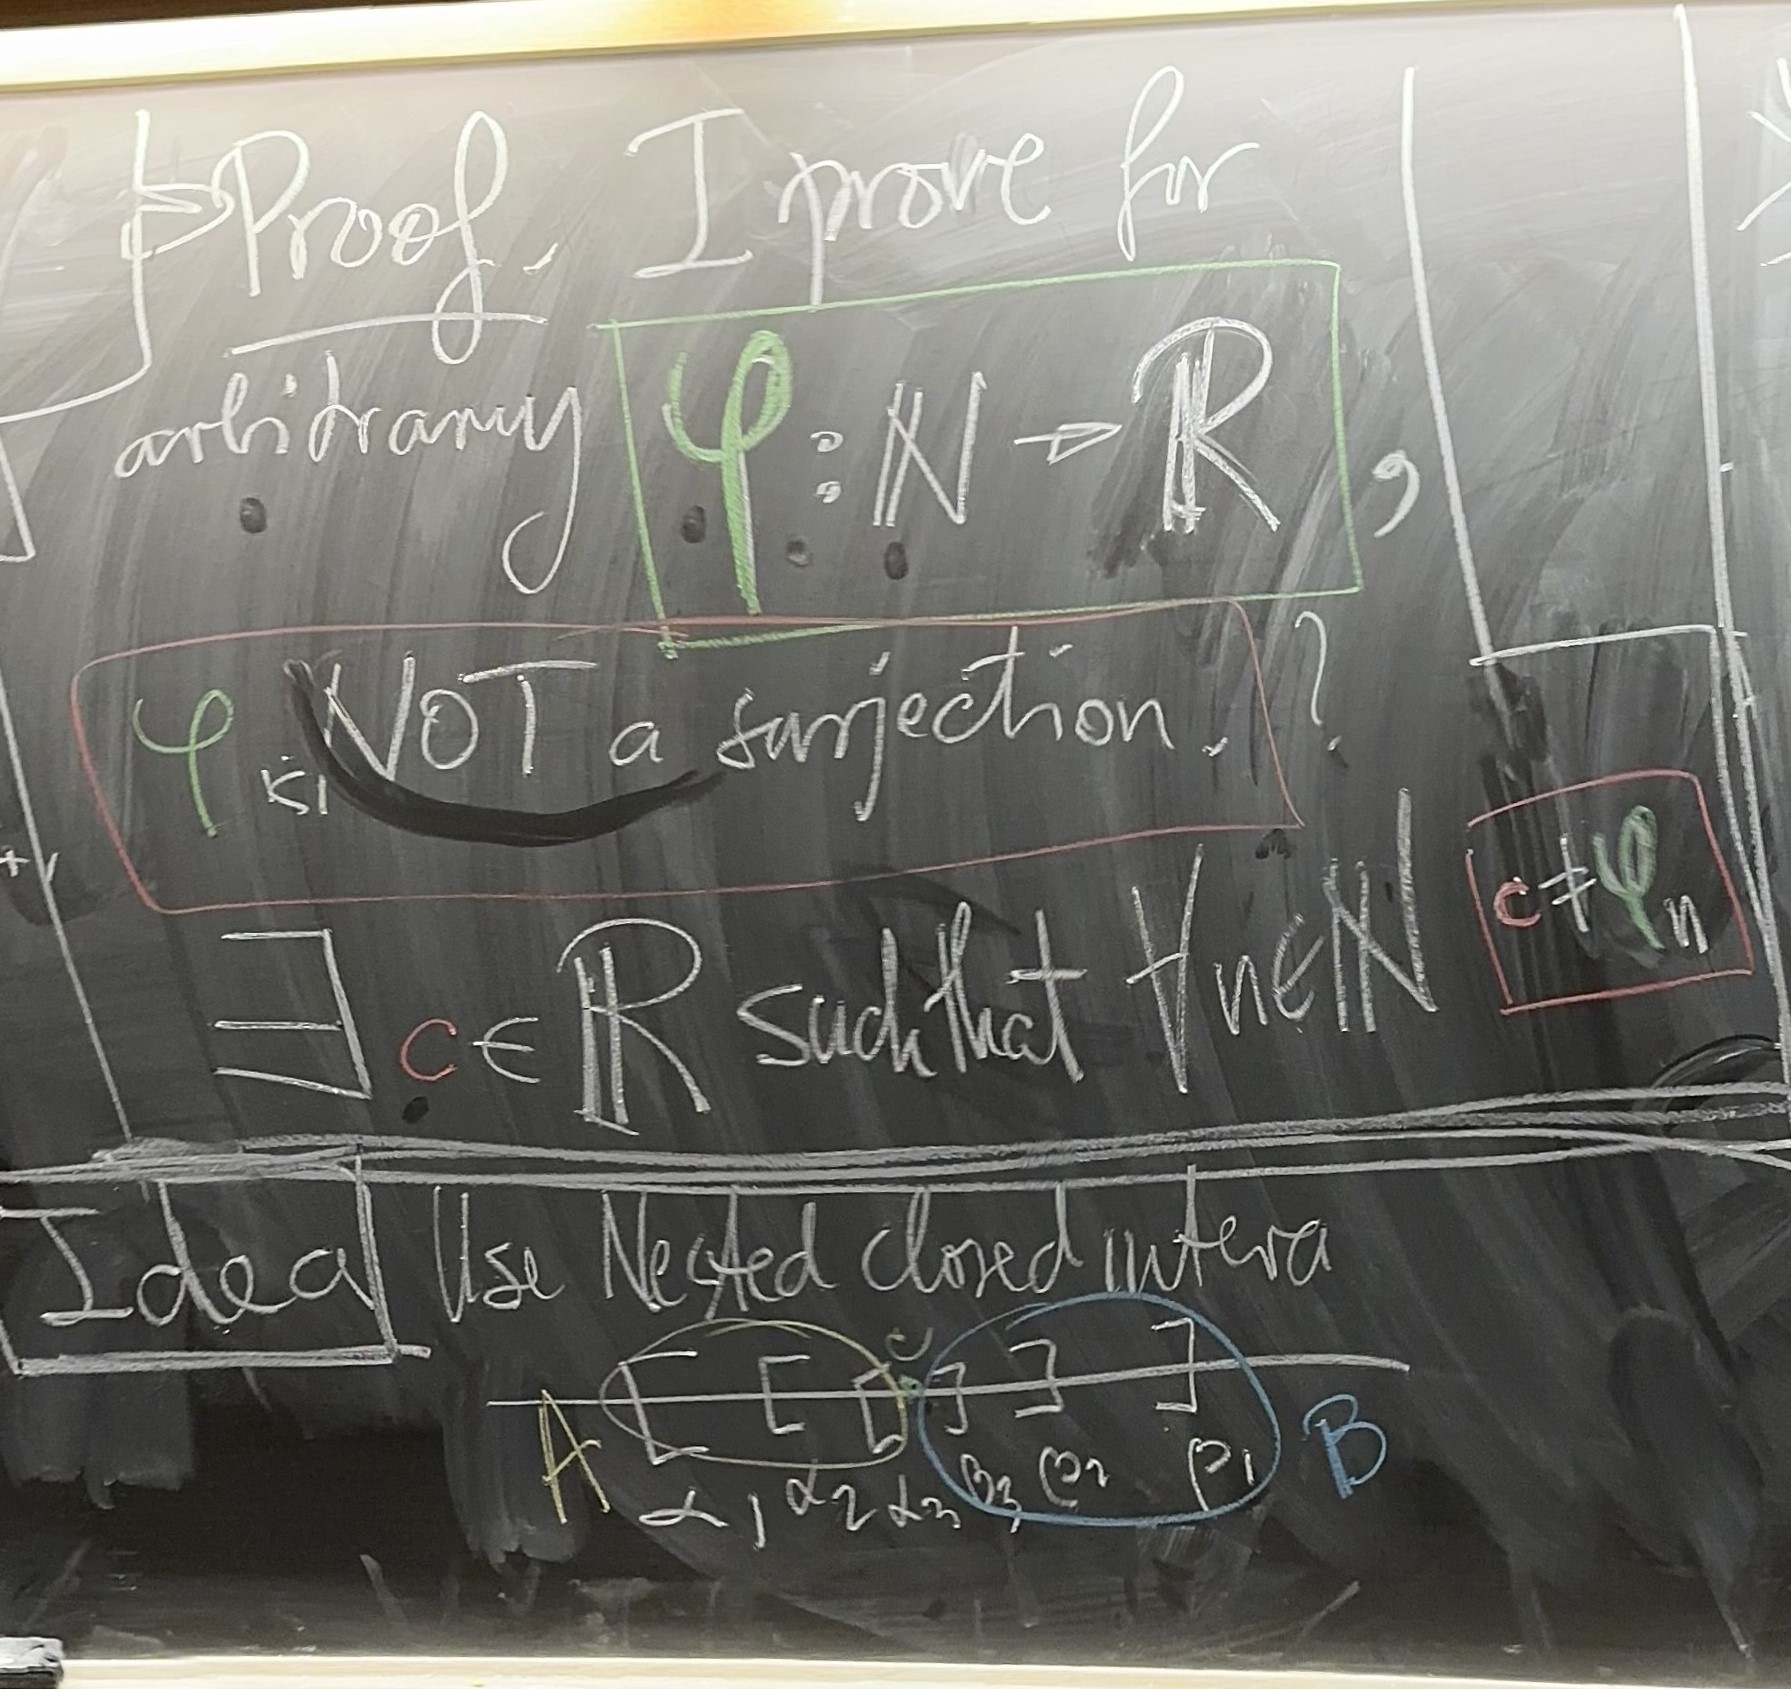 Proof. I prove for
arbitrary φ : ℕ → ℝ,
φ is NOT a surjection. ?
∃ c ∈ ℝ such that ∀ n ∈ ℕ c ≠ φn
Idea Use Nested closed interva
c
[ [ [ ] ] ]
A α1 α2 α3 β3 β2 β1 B